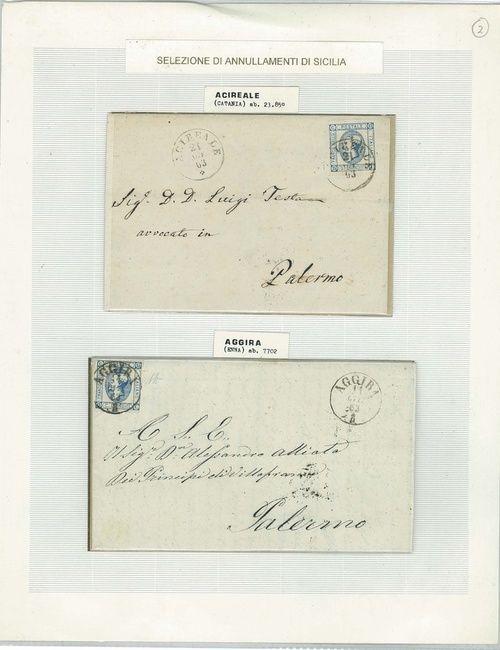 2
SELEZIONE DI ANNULLAMENTI DI SICILIA
ACIREALE
(CATANIA) ab. 23.850
ACIREALE
21
63
POSTALE
21
63
Sig. D. D. Luigi Testa
avvocato in
Palermo
AGGIRA
(ENNA) ab. 7702
AGGIRA
AGGIRA
63
A S. E.
Il Sigr. Dn. Alessandro Alliata
Dei Principi di Villafranca
Palermo